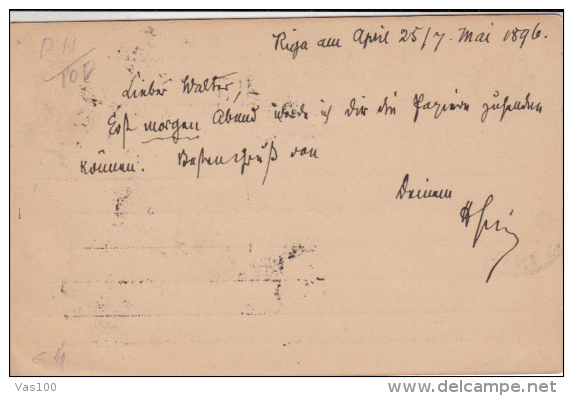 Riga am April 25/7. Mai 1896.
Lieber Walter,
Erst morgen Abend werde ich dir die Papiere zusenden
können. Besten Gruß von
Deinem
Vas100
www.delcampe.net